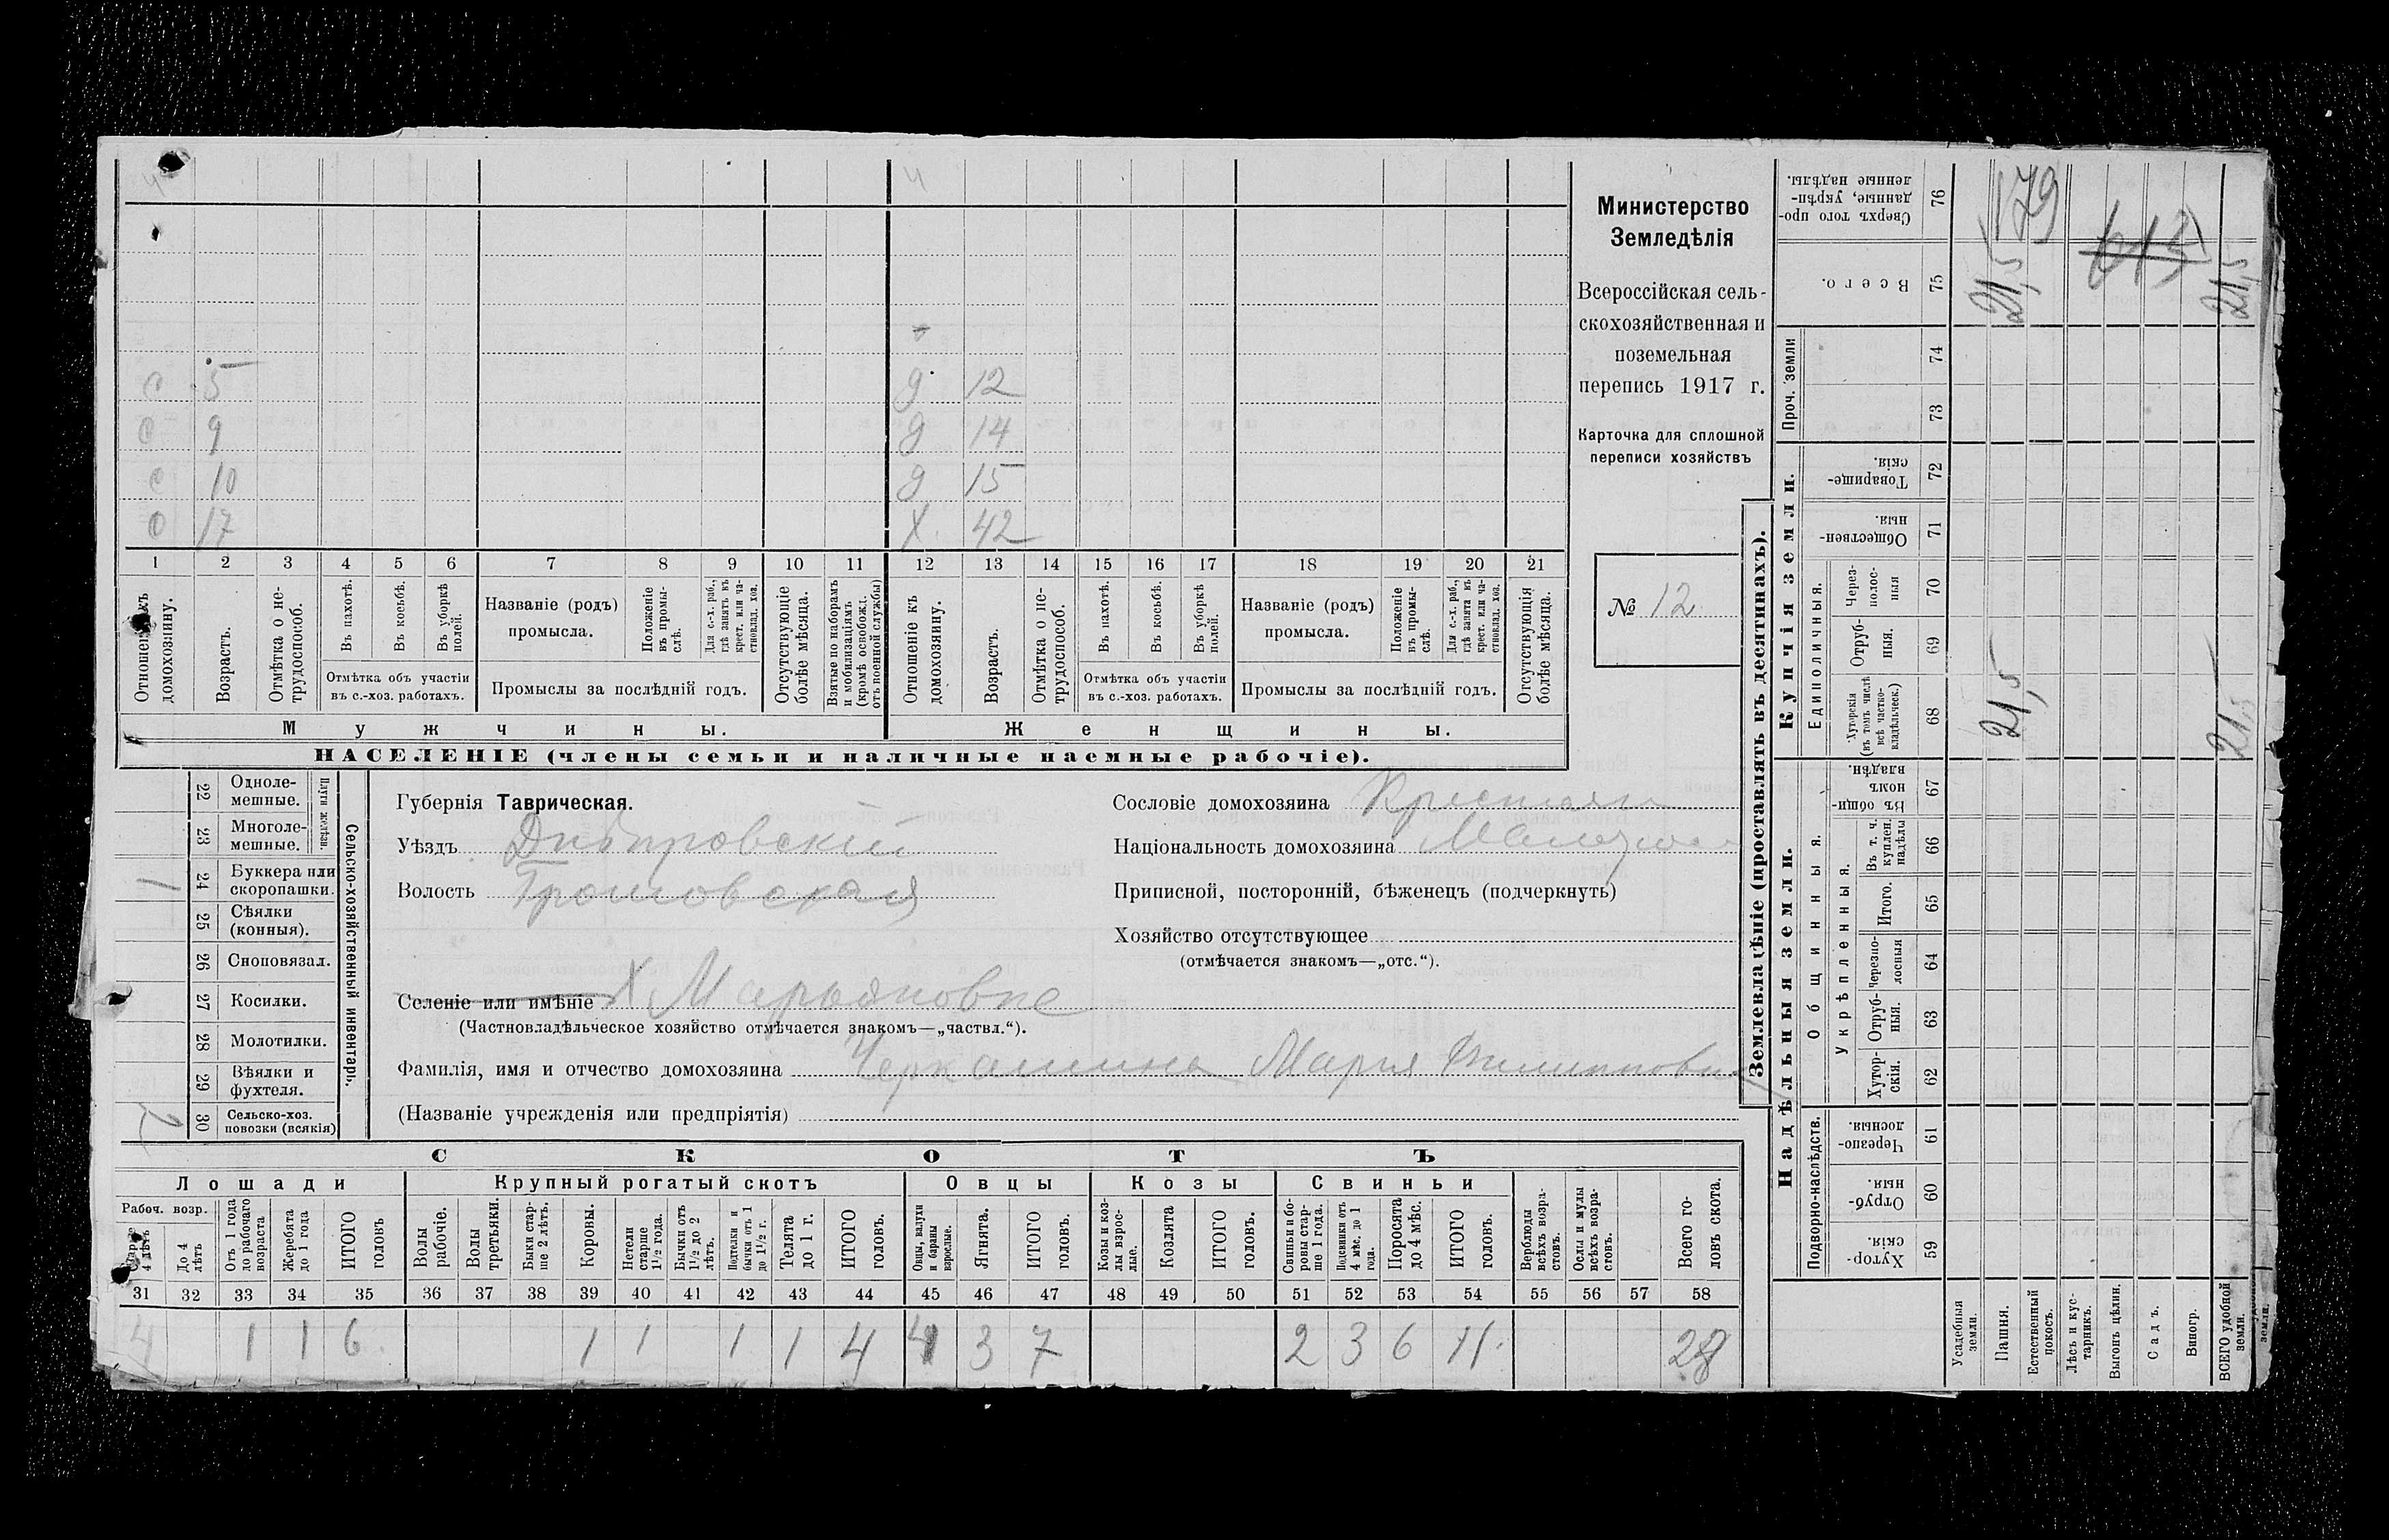 4 4
с 5 д 12
с 9 д 14
с 10 д 15
с 17 х. 42
1 2 3 4 5 6 7 8 9 10 11 12 13 14 15 16 17 18 19 20 21
Отношеніе къ домохозяину.
Возрастъ.
Отмѣтка о не-
трудоспособ.
Въ пахотѣ.
Въ косьбѣ.
Въ уборкѣ
полей.
Отмѣтка объ участіи
въ с.-хоз. работахъ.
Названіе (родъ)
промысла.
Положеніе
въ промы-
слѣ.
Для с.-х. раб.,
гдѣ занятъ въ
крест. или ча-
стновлад. хоз.
Промыслы за послѣдній годъ.
Отсутствующіе
болѣе мѣсяца.
Взятые по наборамъ
и мобилизаціямъ
(кромѣ освобожд.
отъ военной службы)
Отношеніе къ
домохозяину.
Возрастъ.
Отмѣтка о не-
трудоспособ.
Въ пахотѣ.
Въ косьбѣ.
Въ уборкѣ
полей.
Отмѣтка объ участіи
въ с.-хоз. работахъ.
Названіе (родъ)
промысла.
Положеніе
въ промы-
слѣ.
Для с.-х. раб.,
гдѣ занята въ
крест. или ча-
стновлад. хоз.
Промыслы за послѣдній годъ.
Отсутствующія
болѣе мѣсяца.
Мужчины.
Женщины.
НАСЕЛЕНІЕ (члены семьи и наличные наемные рабочіе).
Министерство
Земледѣлія
Всероссійская сель-
скохозяйственная и
поземельная
перепись 1917 г.
Карточка для сплошной
переписи хозяйствъ
№ 12
22 Одноле-
мешные.
23 Многоле-
мешные.
Плуги желѣзн.
24 Буккера или
скоропашки.
1
25 Сѣялки
(конныя).
26 Сноповязал.
27 Косилки.
28 Молотилки.
29 Вѣялки и
фухтеля.
30 Сельско-хоз.
повозки (всякія)
2
Сельско-хозяйственный инвентарь.
Губернія Таврическая.
Уѣздъ Днѣпровскій
Волость Громовская
Селеніе или имѣніе Х Марьяновка
(Частновладѣльческое хозяйство отмѣчается знакомъ—„частвл.“).
Фамилія, имя и отчество домохозяина Черкашина Мария Филипповна
(Названіе учрежденія или предпріятія)
Сословіе домохозяина Крестьян
Національность домохозяина
Приписной, посторонній, бѣженецъ (подчеркнуть)
Хозяйство отсутствующее
(отмѣчается знакомъ—„отс.“).
СКОТЪ
Лошади Крупный рогатый скотъ Овцы Козы Свиньи
Рабоч. возр.
Старше
4 лѣтъ
До 4
лѣтъ
Отъ 1 года
до рабочаго
возраста
Жеребята
до 1 года
ИТОГО
головъ
Волы
рабочіе.
Волы
третьяки.
Быки стар-
ше 2 лѣтъ.
Коровы.
Нетели
старше
1½ года.
Бычки отъ
1½ до 2
лѣтъ.
Подтелки и
бычки отъ 1
до 1½ г.
Телята
до 1 г.
ИТОГО
головъ.
Овцы, валухи
и бараны
взрослые.
Ягнята.
ИТОГО
головъ.
Козы и коз-
лы взрос-
лые.
Козлята
ИТОГО
головъ.
Свиньи и бо-
ровы стар-
ше 1 года.
Подсвинки отъ
4 мѣс. до 1
года.
Поросята
до 4 мѣс.
ИТОГО
головъ.
Верблюды
всѣхъ возра-
стовъ.
Ослы и мулы
всѣхъ возра-
стовъ.
Всего го-
ловъ скота.
31 32 33 34 35 36 37 38 39 40 41 42 43 44 45 46 47 48 49 50 51 52 53 54 55 56 57 58
4 1 1 6 1 1 1 1 4 4 3 7 2 3 6 11 28
Землевладѣніе (проставлять въ десятинахъ).
Купчія земли.
Надѣльныя земли.
Сверхъ того про-
данные, укрѣп-
ленные надѣлы.
76
Всего.
75
Проч. земли
74
73
Товарище-
скія.
72
Обществен-
ныя.
71
Единоличныя.
Через-
полос-
ныя
70
Отруб-
ныя.
69
Хуторскія
(въ томъ числѣ
всѣ частно-
владѣльческ.)
68
Общинныя.
Въ общин-
номъ
владѣн.
67
Укрѣпленныя.
Въ т. ч.
куплен.
надѣлы
66
Итого.
65
Черезпо-
лосныя
64
Отруб-
ныя.
63
Хутор-
скія.
62
Подворно-наслѣдств.
Черезпо-
лосныя.
61
Отруб-
ныя.
60
Хутор-
скія.
59
179
613
21,5
21,5
21,5
21,5
Усадебная
земли.
Пашня.
Естественный
покосъ.
Лѣсъ и кус-
тарникъ.
Выгонъ цѣлин.
Садъ.
Виногр.
ВСЕГО удобной
земли.